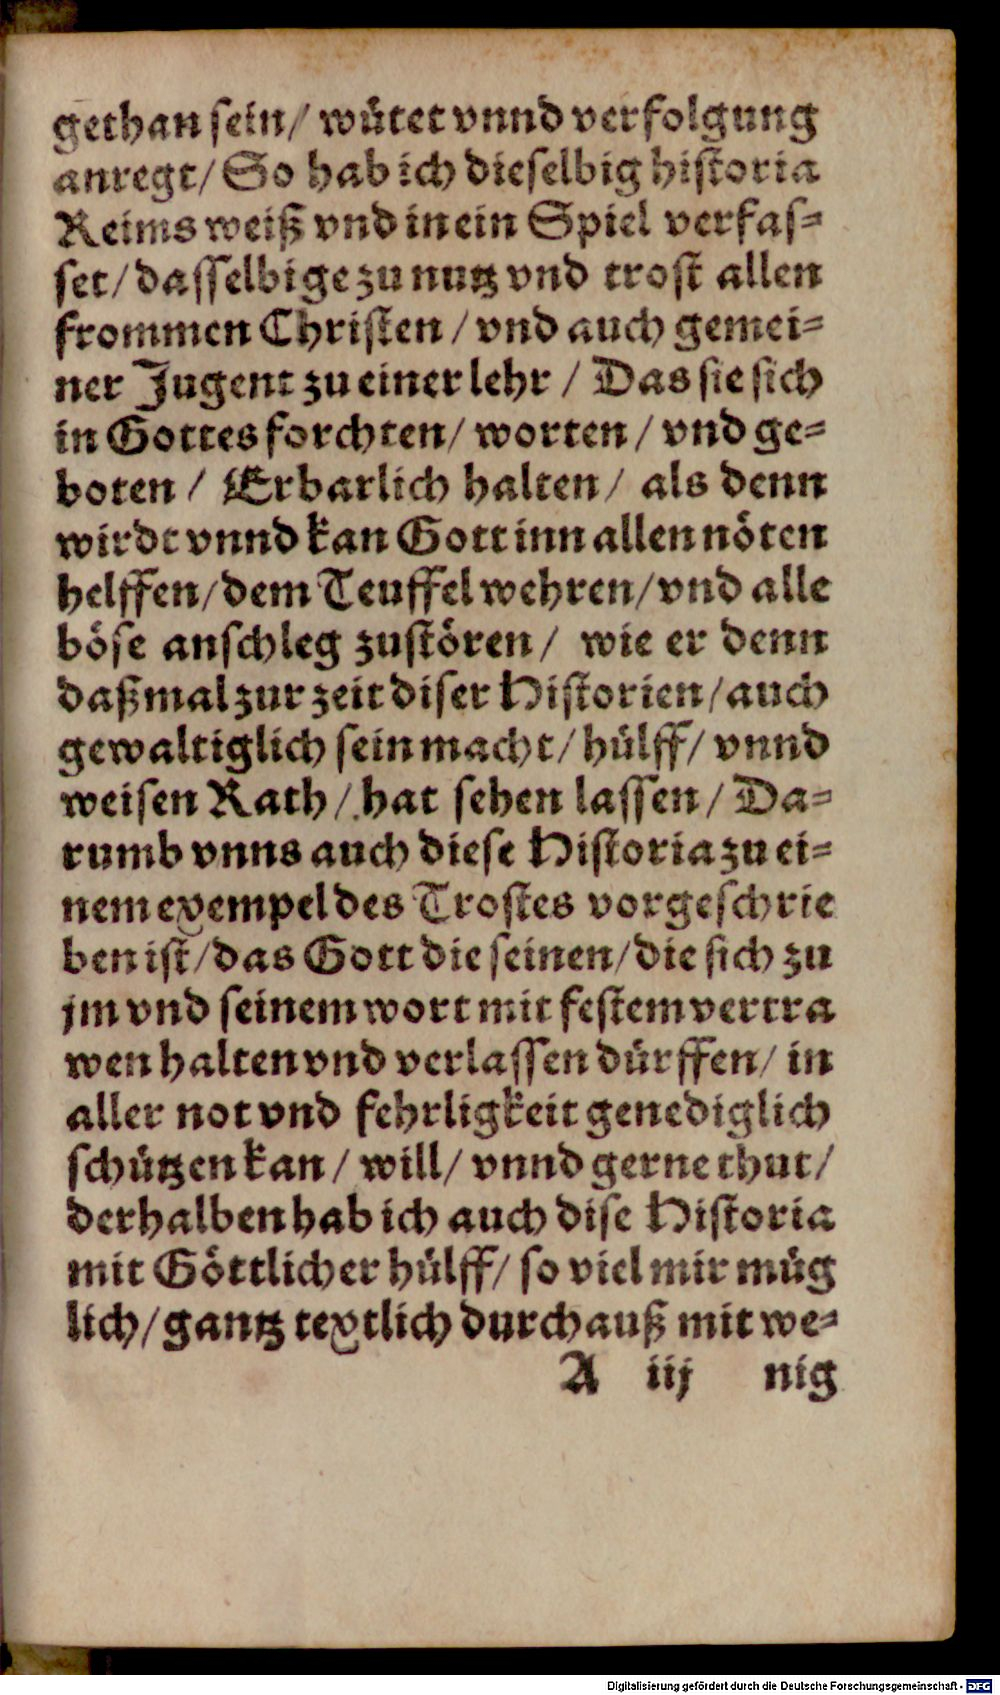 gethan sein/ wütet vnnd verfolgung
anregt/ So hab ich dieselbig historia
Reims weiß vnd in ein Spiel verfas=
set/ dasselbige zu nutz vnd trost allen
frommen Christen / vnd auch gemei=
ner Jugent zu einer lehr / Das sie sich
in Gottes forchten/ worten / vnd ge=
boten / Erbarlich halten/ als denn
wirdt vnnd kan Gott inn allen nöten
helffen/ dem Teuffel wehren/ vnd alle
böse anschleg zustören/ wie er denn
daßmal zur zeit diser Historien/ auch
gewaltiglich sein macht/ hülff/ vnnd
weisen Rath/ hat sehen lassen/ Da=
rumb vnns auch diese Historia zu ei=
nem exempel des Trostes vorgeschrie
ben ist/ das Gott die seinen/ die sich zu
jm vnd seinem wort mit festem vertra
wen halten vnd verlassen dürffen/ in
aller not vnd fehrligkeit genediglich
schützen kan/ will/ vnnd gerne thut/
derhalben hab ich auch dise Historia
mit Göttlicher hülff/ so viel mir müg
lich/ gantz textlich durchauß mit we=
A iij nig
Digitalisierung gefördert durch die Deutsche Forschungsgemeinschaft - DFG